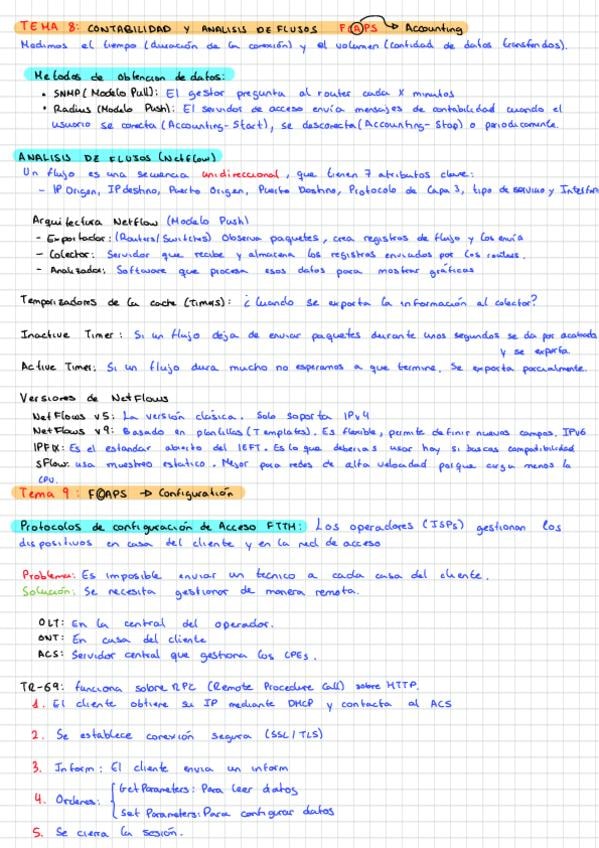 TEMA 8: CONTABILIDAD Y ANALISIS DE FLUJOS FCAPS → Accounting
Medimos el tiempo (duración de la conexión) y el volumen (cantidad de datos transferidos).
Metodos de obtencion de datos:
• SNMP (Modelo Pull): El gestor pregunta al router cada X minutos
• Radius (Modelo Push): El servidor de acceso envía mensajes de contabilidad cuando el
usuario se conecta (Accounting-Start), se desconecta (Accounting-Stop) o periodicamente.
ANALISIS DE FLUJOS (Netflow)
Un flujo es una secuencia unidireccional, que tienen 7 atributos clave:
- IP Origen, IP destino, Puerto Origen, Puerto Destino, Protocolo de Capa 3, tipo de servicio y Interfaz
Arquitectura Netflow (Modelo Push)
- Exportador: (Routers/Switches) Observa paquetes, crea registros de flujo y los envía
- Colector: Servidor que recibe y almacena los registros enviados por los routers.
- Analizador: Software que procesa esos datos para mostrar gráficas
Temporizadores de la cache (Timers): ¿Cuando se exporta la información al colector?
Inactive Timer: Si un flujo deja de enviar paquetes durante unos segundos se da por acabado
y se exporta.
Active Timer: Si un flujo dura mucho no esperamos a que termine. Se exporta parcialmente.
Versiones de NetFlows
NetFlows v5: La versión clásica. Solo soporta IPv4
NetFlows v9: Basado en plantillas (Templates). Es flexible, permite definir nuevos campos. IPv6
IPFIX: Es el estandar abierto del IEFT. Es lo que deberias usar hoy si buscas compatibilidad
sFlow: usa muestreo estatico. Mejor para redes de alta velocidad porque carga menos la
CPU.
Tema 9: FCAPS → Configuration
Protocolos de configuración de Acceso FTTH: Los operadores (ISPs) gestionan los
dispositivos en casa del cliente y en la red de acceso
Problema: Es imposible enviar un tecnico a cada casa del cliente.
Solución: Se necesita gestionar de manera remota.
OLT: En la central del operador.
ONT: En casa del cliente
ACS: Servidor central que gestiona los CPEs.
TR-69: funciona sobre RPC (Remote Procedure Call) sobre HTTP.
1. El cliente obtiene su IP mediante DHCP y contacta al ACS
2. Se establece conexión segura (SSL/TLS)
3. Inform: El cliente envia un inform
4. Ordenes: { Get Parameters: Para leer datos
Set Parameters: Para configurar datos
5. Se cierra la sesión.